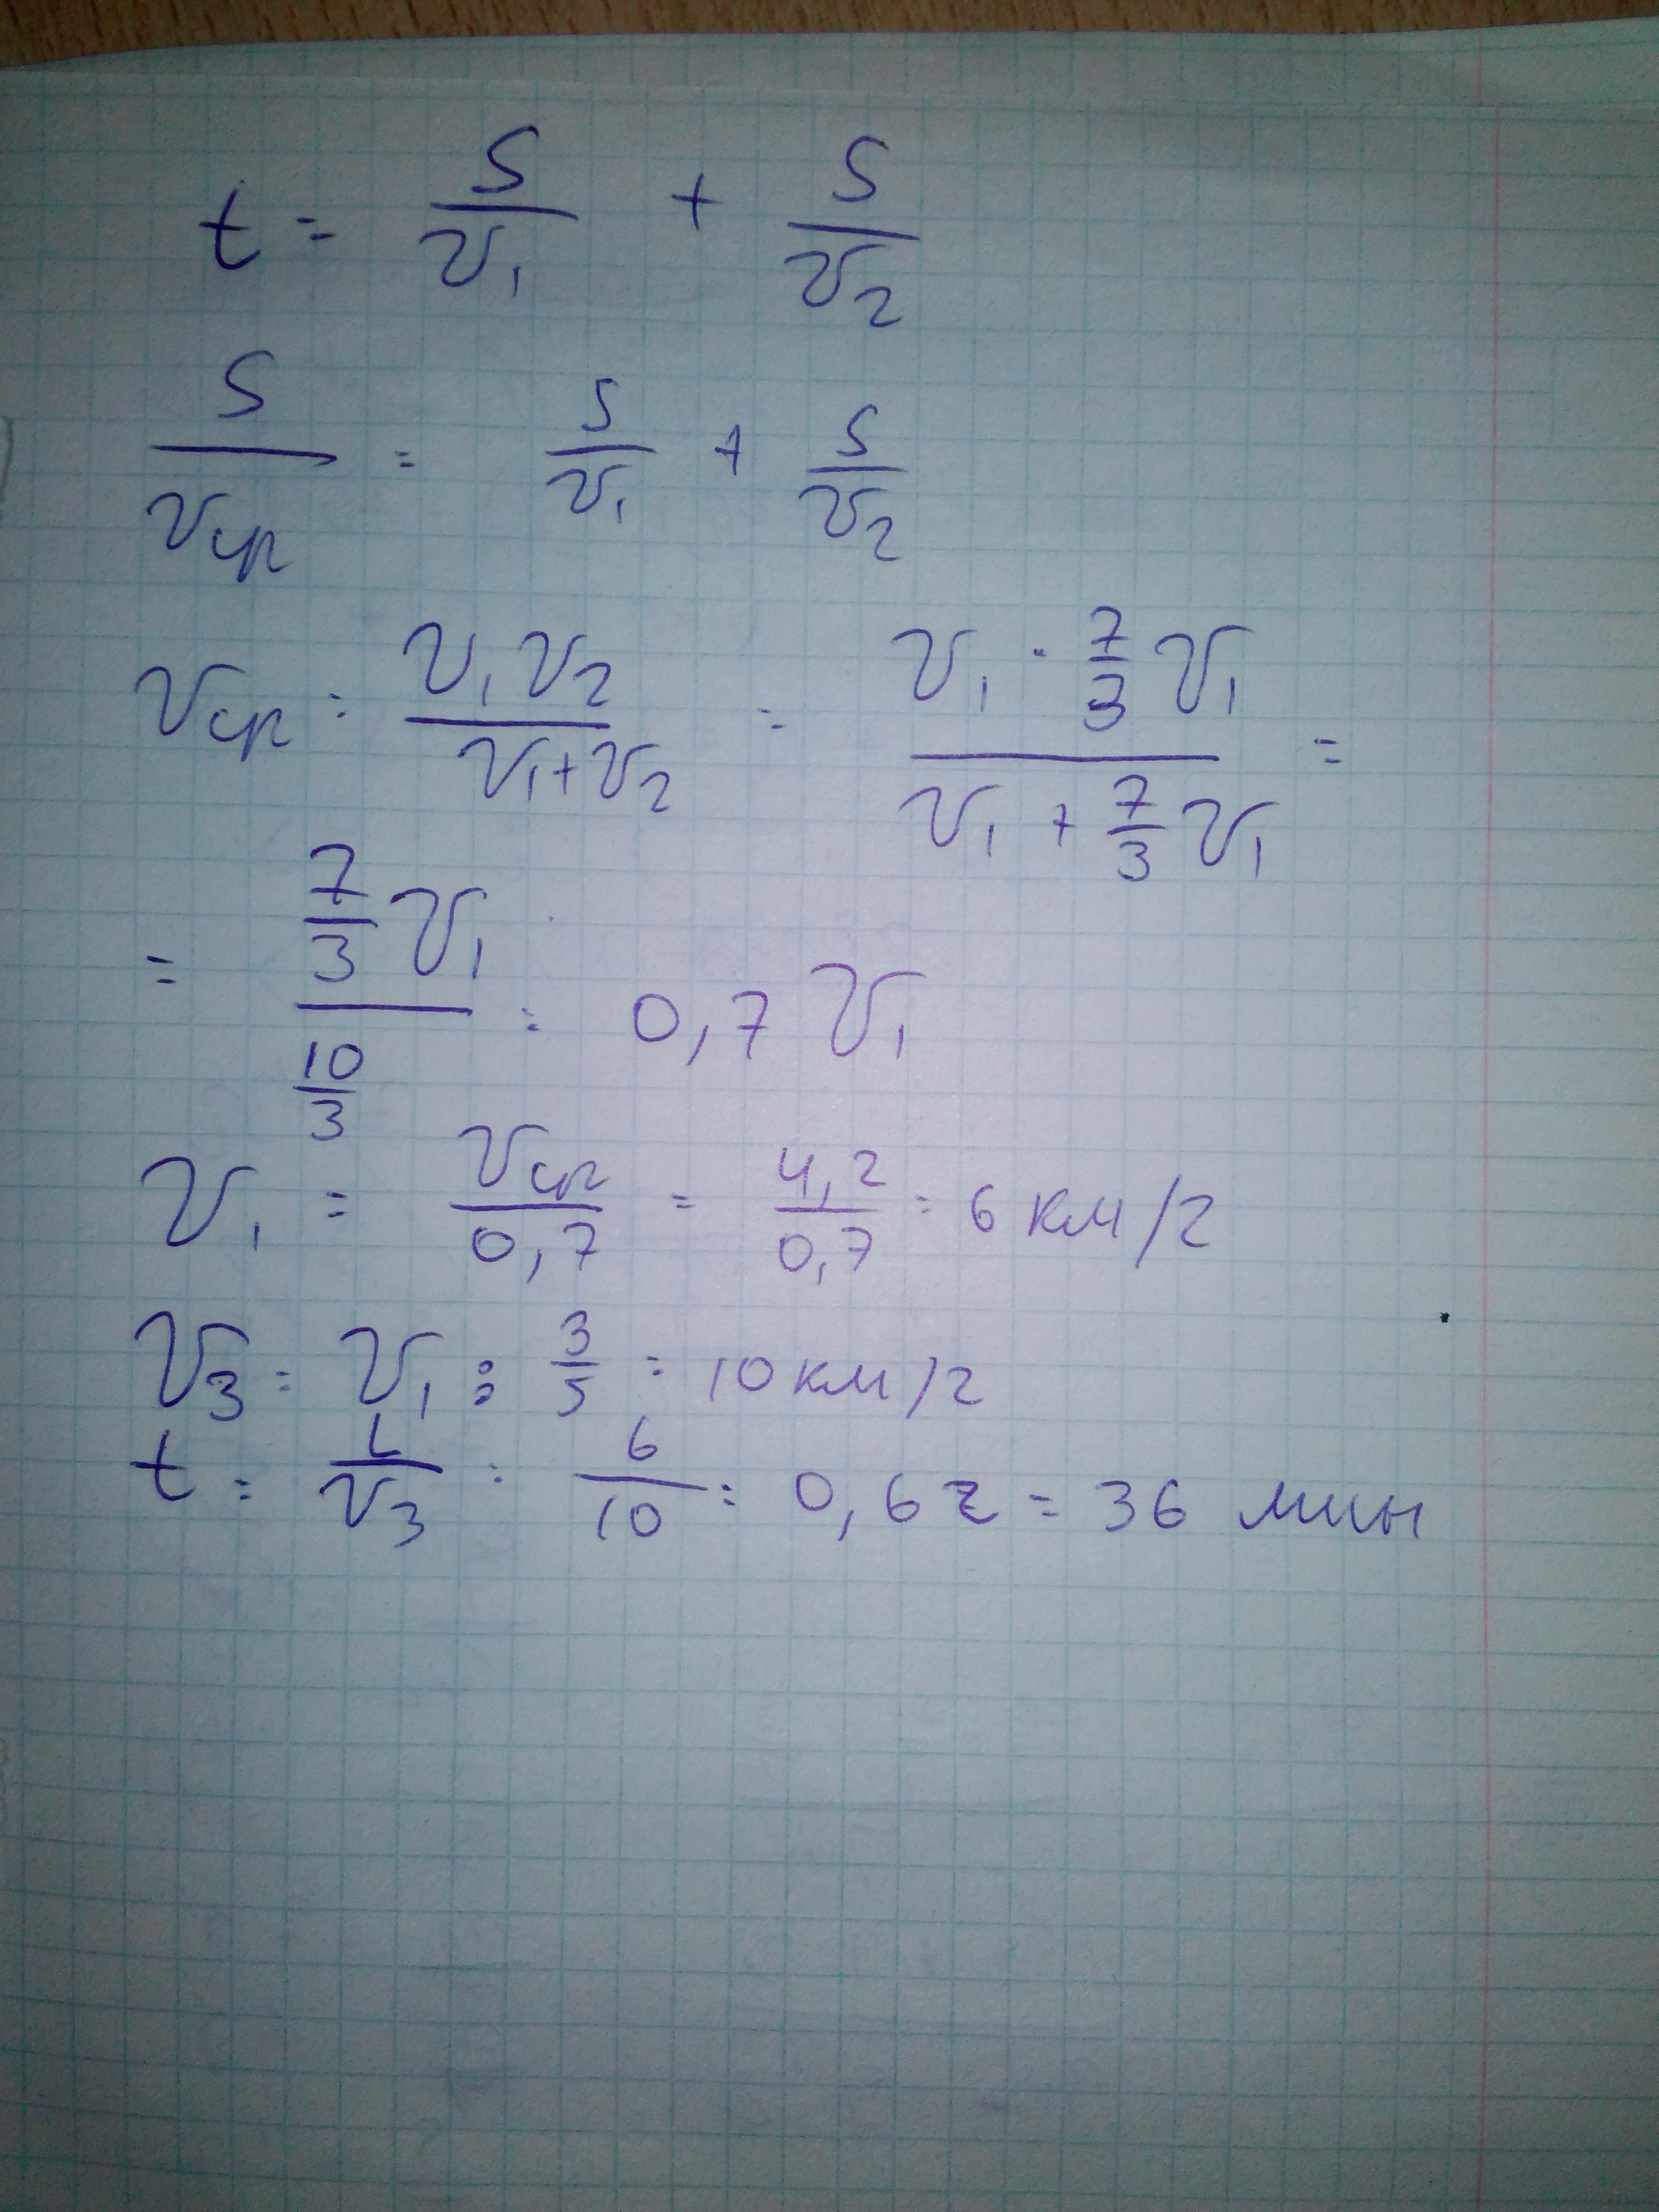 t = S/v₁ + S/v₂
S/vср = S/v₁ + S/v₂
vср = v₁v₂/(v₁+v₂) = (v₁ · 7/3 v₁)/(v₁ + 7/3 v₁) =
= (7/3 v₁)/(10/3) = 0,7 v₁
v₁ = vср/0,7 = 4,2/0,7 = 6 км/г
v₃ = v₁ : 3/5 = 10 км/г
t = L/v₃ = 6/10 = 0,6 г = 36 мин